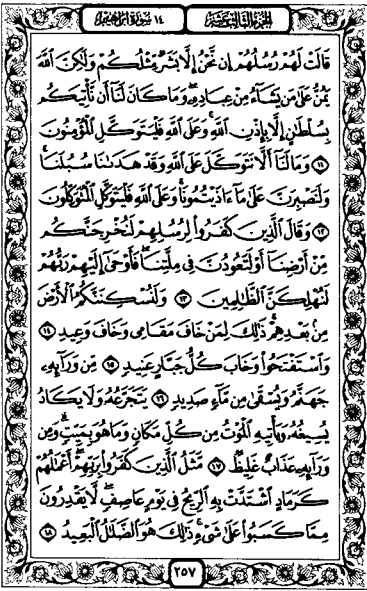 الجزء الثالث عشر ١٤ سورة إبراهيم
قَالَتْ لَهُمْ رُسُلُهُمْ إِن نَّحْنُ إِلَّا بَشَرٌ مِّثْلُكُمْ وَلَٰكِنَّ ٱللَّهَ
يَمُنُّ عَلَىٰ مَن يَشَآءُ مِنْ عِبَادِهِۦ وَمَا كَانَ لَنَآ أَن نَّأْتِيَكُم
بِسُلْطَٰنٍ إِلَّا بِإِذْنِ ٱللَّهِ وَعَلَى ٱللَّهِ فَلْيَتَوَكَّلِ ٱلْمُؤْمِنُونَ
١١ وَمَا لَنَآ أَلَّا نَتَوَكَّلَ عَلَى ٱللَّهِ وَقَدْ هَدَىٰنَا سُبُلَنَا
وَلَنَصْبِرَنَّ عَلَىٰ مَآ ءَاذَيْتُمُونَا وَعَلَى ٱللَّهِ فَلْيَتَوَكَّلِ ٱلْمُتَوَكِّلُونَ
١٢ وَقَالَ ٱلَّذِينَ كَفَرُوا۟ لِرُسُلِهِمْ لَنُخْرِجَنَّكُم
مِّنْ أَرْضِنَآ أَوْ لَتَعُودُنَّ فِى مِلَّتِنَا فَأَوْحَىٰٓ إِلَيْهِمْ رَبُّهُمْ
لَنُهْلِكَنَّ ٱلظَّٰلِمِينَ ١٣ وَلَنُسْكِنَنَّكُمُ ٱلْأَرْضَ
مِنۢ بَعْدِهِمْ ذَٰلِكَ لِمَنْ خَافَ مَقَامِى وَخَافَ وَعِيدِ ١٤
وَٱسْتَفْتَحُوا۟ وَخَابَ كُلُّ جَبَّارٍ عَنِيدٍ ١٥ مِّن وَرَآئِهِۦ
جَهَنَّمُ وَيُسْقَىٰ مِن مَّآءٍ صَدِيدٍ ١٦ يَتَجَرَّعُهُۥ وَلَا يَكَادُ
يُسِيغُهُۥ وَيَأْتِيهِ ٱلْمَوْتُ مِن كُلِّ مَكَانٍ وَمَا هُوَ بِمَيِّتٍ وَمِن
وَرَآئِهِۦ عَذَابٌ غَلِيظٌ ١٧ مَّثَلُ ٱلَّذِينَ كَفَرُوا۟ بِرَبِّهِمْ أَعْمَٰلُهُمْ
كَرَمَادٍ ٱشْتَدَّتْ بِهِ ٱلرِّيحُ فِى يَوْمٍ عَاصِفٍ لَّا يَقْدِرُونَ
مِمَّا كَسَبُوا۟ عَلَىٰ شَىْءٍ ذَٰلِكَ هُوَ ٱلضَّلَٰلُ ٱلْبَعِيدُ ١٨
٢٥٧